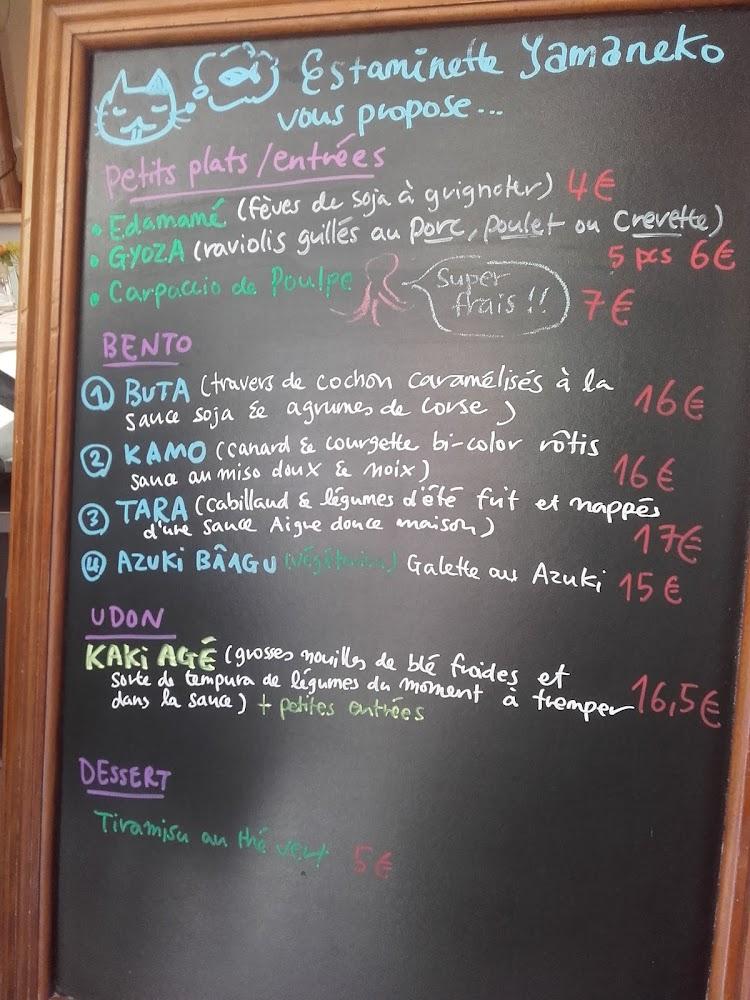 Estaminette Yamaneko
vous propose...
Petits plats/entrées
• Edamamé (fèves de soja à grignoter) 4€
• GYOZA (raviolis grillés au porc, poulet ou crevette)
5 pcs 6€
• Carpaccio de Poulpe
Super
frais !!
7€
BENTO
① BUTA (travers de cochon caramélisés à la
sauce soja & agrumes de Corse) 16€
② KAMO (canard & courgette bi-color rôtis
sauce au miso doux & noix) 16€
③ TARA (Cabillaud & légumes d'été frit et nappés
d'une sauce Aigre douce maison) 17€
④ AZUKI BÂAGU (végétarien) Galette aux Azuki 15€
UDON
KAKI AGÉ (grosses nouilles de blé froides et
sorte de tempura de légumes du moment à tremper
dans la sauce) + petites entrées 16,5€
DESSERT
Tiramisu au thé vert 5€